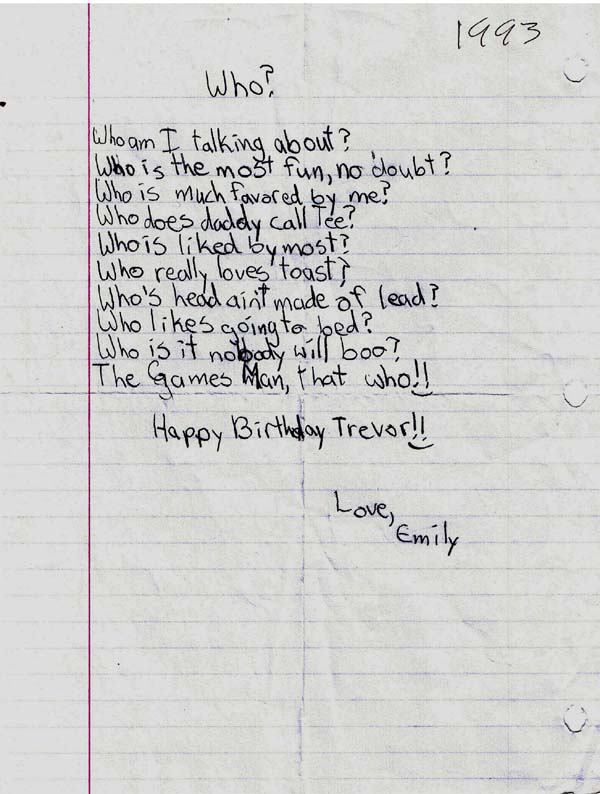 1993
Who?
Who am I talking about?
Who is the most fun, no doubt?
Who is much favored by me?
Who does daddy call Tee?
Who is liked by most?
Who really loves toast?
Who's head ain't made of lead?
Who likes going to bed?
Who is it nobody will boo?
The Games Man, that who!!
Happy Birthday Trevor!!
Love,
Emily